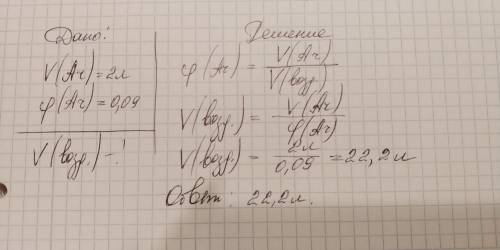 Дано:
V(Ar)=2л
φ(Ar)=0,09
V(возд.)-?
Решение
φ(Ar)= V(Ar)/V(возд.)
V(возд.)= V(Ar)/φ(Ar)
V(возд.)= 2л/0,09 =22,2л
Ответ: 22,2л.